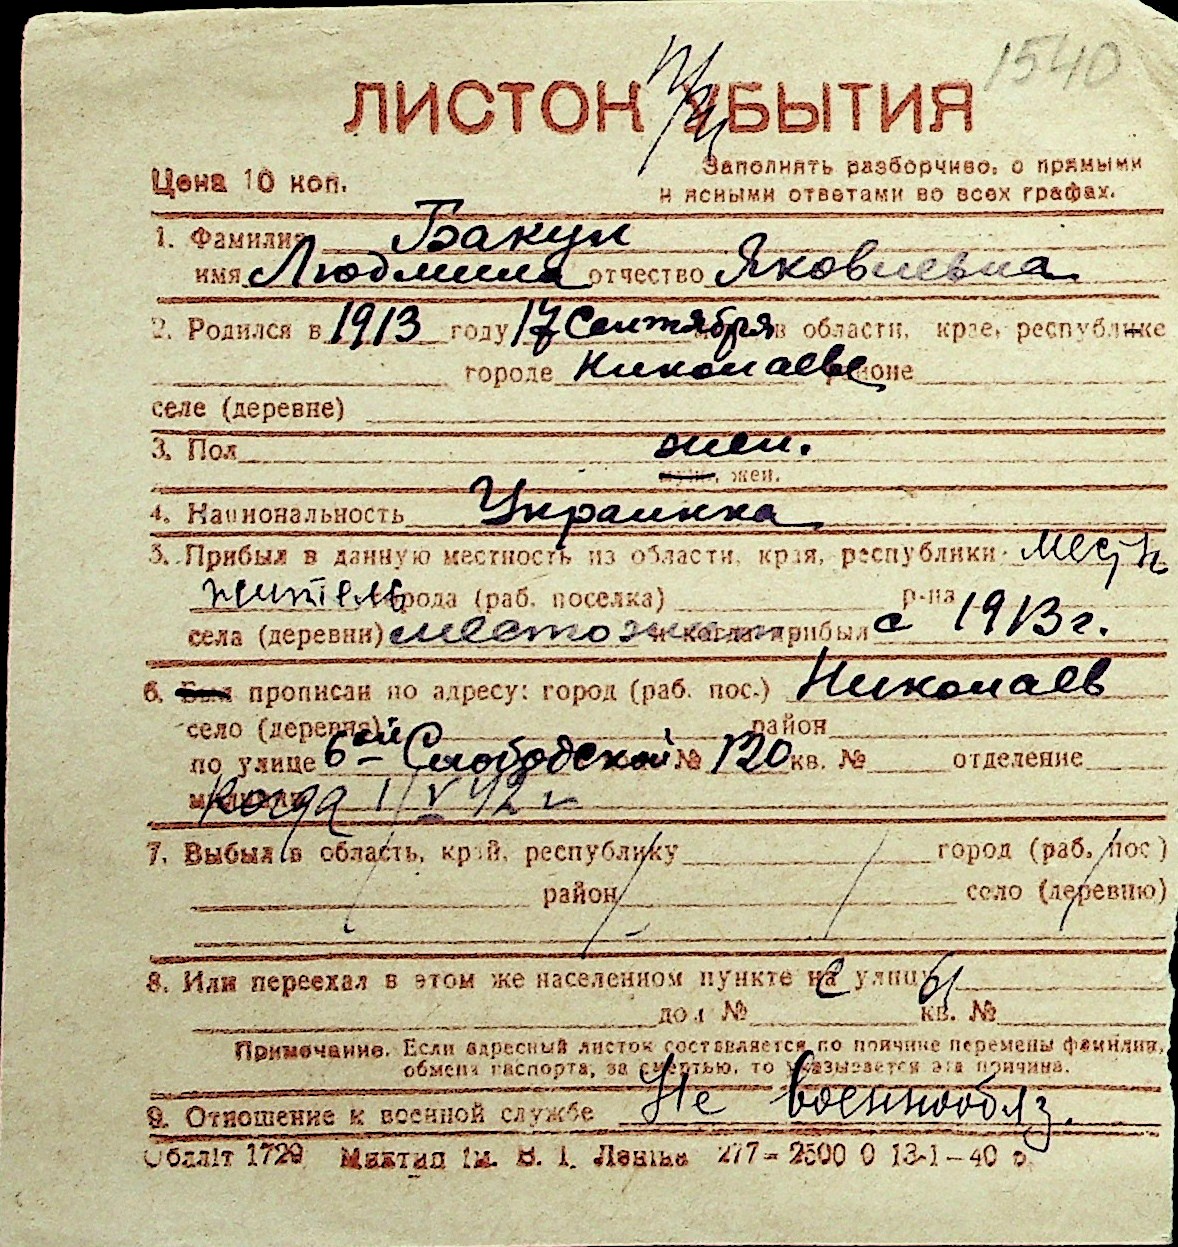 1540
ЛИСТОК УБЫТИЯ
При
Цена 10 коп.
Заполнять разборчиво, о прямыми
и ясными ответами во всех графах.
1. Фамилия Бакул
имя Людмила отчество Яковлевна
2. Родился в 1913 году 17 Сентября в области, крае, республике
городе Николаеве районе
селе (деревне)
3. Пол жен.
муж., жен.
4. Национальность Украинка
5. Прибыл в данную местность из области, края, республики мест
житель города (раб. поселка) р-на
села (деревни) местожит и когда прибыл с 1913 г.
6. Был прописан по адресу: город (раб. пос.) Николаев
село (деревня) район
по улице 6ой Слободской № 120 кв. № отделение
милиции Когда 1/V 42 г
7. Выбыл в область, край, республику город (раб. пос)
район село (деревню)
8. Или переехал в этом же населенном пункте на улицу
дом № кв. №
Примечание. Если адресный листок составляется по причине перемены фамилии,
обмена паспорта, за смертью, то указывается эта причина.
9. Отношение к военной службе Не военнообяз.
Обллiт 1729 Миктип iм. В. I. Ленiна 277–2500 0 13-1–40 р.